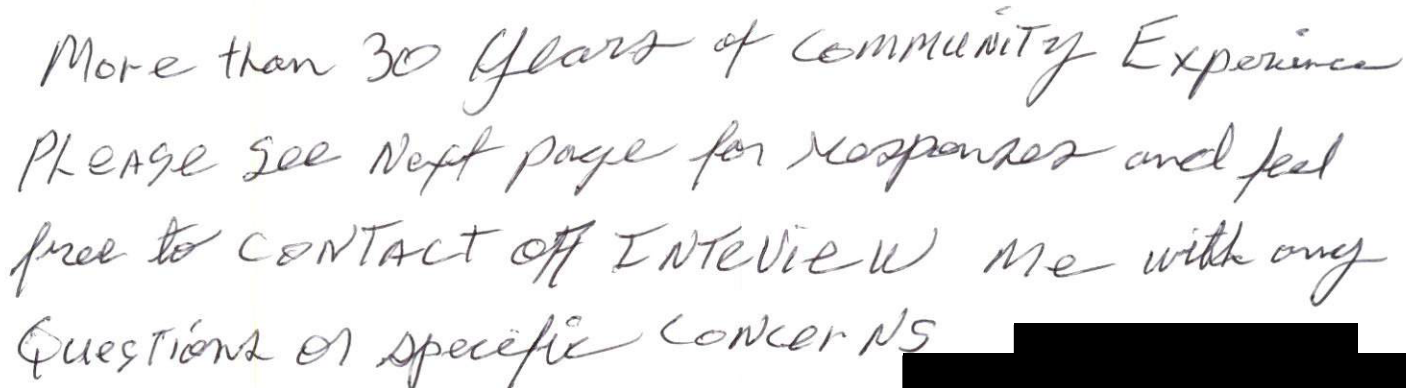 More than 30 Years of COMMUNITY Experience
PLEASE See Next page for responses and feel
free to CONTACT or INTEVIEW Me with any
Questions or specific CONCERNS